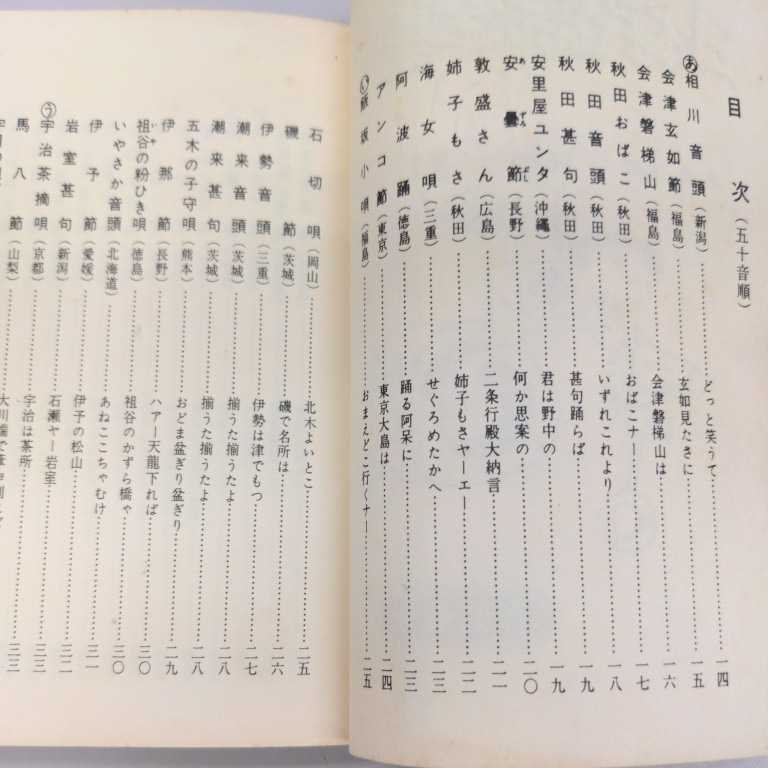 目次(五十音順)
あ相川音頭(新潟)……どっと笑うて……一四
会津玄如節(福島)……玄如見たさに……一五
会津磐梯山(福島)……会津磐梯山は……一六
秋田おばこ(秋田)……おばこナー……一七
秋田音頭(秋田)……いずれこれより……一八
秋田甚句(秋田)……甚句踊らば……一九
安里屋ユンタ(沖縄)……君は野中の……一九
安曇節(長野)……何か思案の……二〇
敦盛さん(広島)……二条行殿大納言……二一
姉子もさ(秋田)……姉子もさヤーエー……二二
海女唄(三重)……せぐろめたかへ……二三
阿波踊(徳島)……踊る阿呆に……二三
アンコ節(東京)……東京大島は……二四
い飯坂小唄(福島)……おまえどこ行くナー……二五
石切唄(岡山)……北木よいとこ……二五
磯節(茨城)……磯で名所は……二六
伊勢音頭(三重)……伊勢は津でもつ……二七
潮来音頭(茨城)……揃うたよ揃うたよ……二八
潮来甚句(茨城)……揃うたよ揃うたよ……二八
五木の子守唄(熊本)……おどま盆ぎり盆ぎり……二九
伊那節(長野)……ハアー天龍下れば……二九
祖谷の粉ひき唄(徳島)……祖谷のかずら橋ゃ……三〇
いやさか音頭(北海道)……あねここちゃむけ……三〇
伊予節(愛媛)……伊予の松山……三一
岩室甚句(新潟)……石瀬ヤー岩室……三二
う宇治茶摘唄(京都)……宇治は茶所……三三
馬八節(山梨)……三三